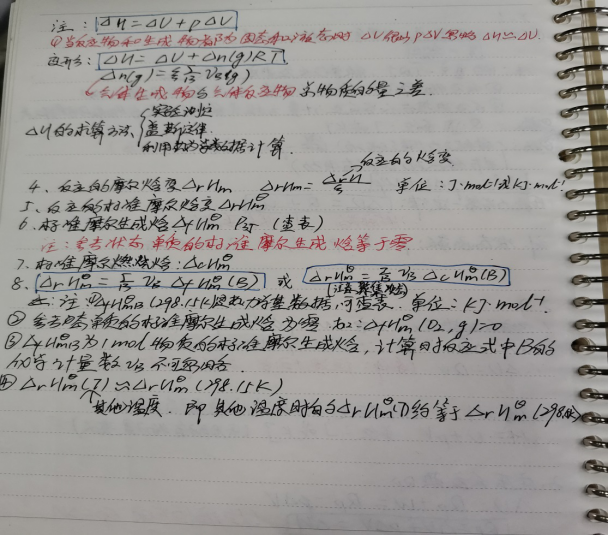 注：ΔH=ΔU+pΔV
①当反应物和生成物都为固态和液态时 ΔU PΔV ΔH≈ΔU.
ΔH=ΔU+Δn(g)RT
Δn(g)=ξΣVB(g)
气体生成物与气体反应物 物质的量之差.
实验测定
ΔH的求算方法 盖斯定律.
利用热力学数据计算.
反应的焓变
4、反应的摩尔焓变ΔrHm ΔrHm=ΔrH/ξ 单位：J·mol⁻¹或KJ·mol⁻¹
5、反应的标准摩尔焓变ΔrHm⊖
6、标准摩尔生成焓ΔfHm⊖ P27（查表）
注：参考状态单质的标准摩尔生成焓等于零.
7、标准摩尔燃烧焓：ΔcHm⊖
8、ΔrHm⊖=ΣVBΔfHm⊖(B) 或 ΔrHm⊖=ΣVBΔcHm⊖(B)
(注意聚集状态)
注①ΔfHm⊖(298.15K)是热力学数据，可查表. 单位：KJ·mol⁻¹.
②参考态单质的标准摩尔生成焓为零 如：ΔfHm⊖(O₂,g)=0
③ΔfHm⊖为1mol物质的标准摩尔生成焓，计算时反应式中B的
计量数VB不可忽略.
④ΔrHm⊖(T)≈ΔrHm⊖(298.15K)
其他温度. 即其他温度时的ΔrHm⊖(T)约等于ΔrHm⊖(298K)